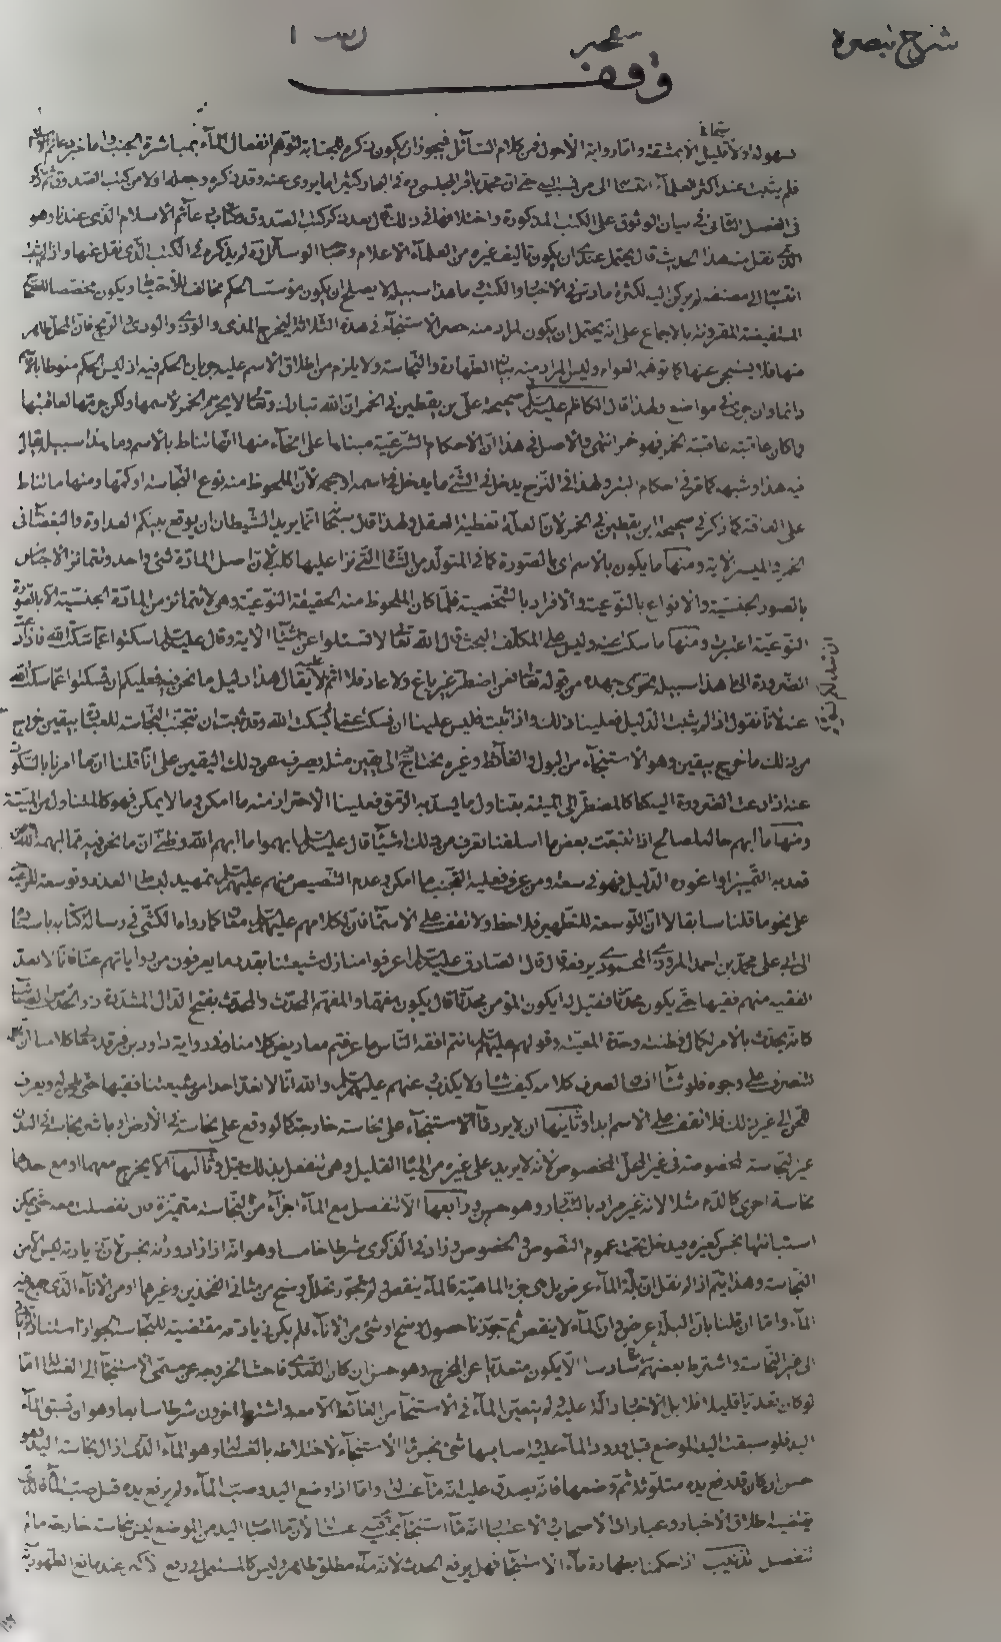 شرح تبصره
وقف
لسهولة ولا قليل الا بمشقة واما رواية الأحول فمن كلام السائل فيجوز ان يكون ذكره للجنابة لتوهم انفعال الماء بمباشرة الجنب واما خبر دعائم الاسلام
فلم يثبت عند اكثر العلماء انتسابه الى من نسب اليه حتى ان محمد باقر المجلسي ره في البحار كثيرا ما يروى عنه وقد ذكره وجعله اولا من كتب الصدوق ثم ذكر
في الفصل الثاني في بيان الوثوق على الكتب المذكورة واختلافها في ذلك قال بعد ذكر كتب الصدوق وكتاب دعائم الاسلام الذي عندنا وهو
الذي نقل منه هذا الحديث قال يحتمل عندي ان يكون تاليف غيره من العلماء الاعلام وصاحب الوسائل ره لم يذكره في الكتب الذي نقل عنها واذا لم يثبت
انتسابه الى مصنفه لم يركن اليه لكثرة ما دس في الاخبار والكتب وما هذا سبيله لا يصلح ان يكون مؤسسا لحكم مخالف للاحتياط ويكون مخصصا للصحاح
المستفيضة المقرونة بالاجماع على انه يحتمل ان يكون المراد منه حصر الاستنجاء في هذه الثلاثة ليخرج المذى والوذى والودى والريح فان المحل طاهر
منها فلا يستنجى عنها كما توهمه العوام وليس المراد منه بيان الطهارة والنجاسة ولا يلزم من اطلاق الاسم عليه جريان الحكم فيه اذ ليس الحكم منوطا بالاسم
دائما وان جرى في مواضع ولهذا قال الكاظم عليه السلام في صحيحة على بن يقطين في الخمر ان الله تبارك وتعالى لا يحرم الخمر لاسمها ولكن حرمها لعاقبتها
فما كان عاقبته عاقبة الخمر فهو خمر انتهى والاصل في هذا ان الاحكام الشرعية مبناها على انحاء منها انها تناط بالاسم وما هذا سبيله يقال
فيه هذا وشبهه كما قرر في احكام البئر ولهذا في النزح يدخل في الشئ ما يدخل في اسمه لاجمه لان الملحوظ منه نوع النجاسة او كمها ومنها ما تناط
على العاقبة كما ذكر في صحيحة ابن يقطين في الخمر لان العلة تغطية العقل ولهذا قال سبحانه انما يريد الشيطان ان يوقع بينكم العداوة والبغضاء في
الخمر والميسر الاية ومنها ما يكون بالاسم اى بالصورة كما في المتولد من الشاة التي نزا عليها كلب لان اصل المادة شئ واحد وتتمائز الاجناس
بالصور الجنسية والانواع بالنوعية والافراد بالشخصية فلما كان الملحوظ منه الحقيقة النوعية وهى لا تتمائز من المادة الجنسية الا بالصورة
النوعية اعتبرت ومنها ما سكت عنه وليس على المكلف البحث قال الله تعالى لا تسئلوا عن اشياء الاية وقال عليه السلام اسكتوا عما سكت الله فاذا دعت
الضرورة الى ما هذا سبيله تحرى جهده من قوله تعالى فمن اضطر غير باغ ولا عاد فلا اثم عليه لا يقال هذا دليل ما نحن فيه فعليكم ان تسكتوا عما سكت الله
عنه لانا نقول اذا لم يثبت الدليل فعلينا ذلك واذا ثبت فليس علينا ان نسكت عما لم يسكت الله وقد ثبت ان نتجنب النجاسة للعبادة بيقين خرج
من ذلك ما خرج بيقين وهو الاستنجاء من البول والغائط وغيره يحتاج الى يقين مثله يصرف عن ذلك اليقين على انا قلنا ان ما امرنا بالسكوت
عنه اذا دعت الضرورة اليه كالمضطر الى الميتة يتناول ما يسد به الرمق فعلينا الاحتراز منه ما امكن وما لا يمكن فهو كالمتناول من الميتة
ومنها ما ابهم حاله لمصالح اذا تتبعت بعض ما اسلفنا تعرف من ذلك اشياء قال عليه السلام ابهموا ما ابهم الله وظني ان ما نحن فيه مما ابهمه الله فمن
قعد به التمييز او اعوزه الدليل فهو في سعة ومن عرف فعليه التجنب ما امكن وعدم التنصيص منهم عليهم السلام تمهيد لبساط العذر وتوسعة للرعية
على نحو ما قلنا سابقا لا ان التوسعة للتطهير فلاحظ ولا تقف على الاسماء فان لكلامهم عليهم السلام معان كما رواه الكشى في رسالة كتابه باسناده
الى ابى على محمد بن احمد المروزى المحمودى يرفعه قال قال الصادق عليه السلام اعرفوا منازل شيعتنا بقدر ما يعرفون من رواياتهم عنا فانا لا نعد
الفقيه منهم فقيها حتى يكون محدثا فقيل له ايكون المؤمن محدثا قال يكون مفهما والمفهم المحدث والمحدث بفتح الدال المشددة
كانه يحدث بالامر لكمال فطنته وحدة المعيته وقولهم عليهم السلام انتم افقه الناس ما عرفتم معاريض كلامنا وفى رواية داود بن فرقد معانى كلامنا ان كلامنا
لتنصرف على وجوه فلو شاء انسان لصرف كلامه كيف شاء ولا يكذب وعنهم عليهم السلام والله انا لا نعد احدا من شيعتنا فقيها حتى يلحن له ويعرف
اللحن الى غير ذلك فلا تقف على الاسم ابدا وثانيها ان لا يرد ماء الاستنجاء على نجاسة خارجة كما لو وقع على نجاسة في الارض او باشر نجاسة في البدن
غير النجاسة المخصوصة في غير المحل المخصوص لانه لا يزيد على غيره من المياه القليل وهى تنفعل بذلك قيل وثالثها الا يخرج معهما او مع احدهما
نجاسة اخرى كالدم مثلا لانه غير مراد بالتجاوز وهو حسن ورابعها الا تنفصل مع الماء اجزاء من النجاسة متميزة فان انفصلت معه حتى يمكن
استبانتها نجس كغيره فيدخل تحت عموم النصوص والخصوص وزاد في الذكرى شرطا خامسا وهو انه اذا زاد وزنه نجس لان زيادته ليس الا من
النجاسة وهذا يتم اذا لم نقل ان بلة الماء عرض بل هى جزء الماهية فالماء ينقص ولم نجوز تحلل وسخ من مثانى الفخذين وغيرهما او من الاناء الذى صب فيه
الماء واما ان قلنا بان البلة عرض وان الماء لا ينقص ثم جوزنا حصول وسخ او شئ من الاناء فلم يكن في زيادته مقتضية للنجاسة لجواز استناد الزيادة
الى غير النجاسة واشترط بعضهم سادسا الا يكون متعديا عن المخرج وهو حسن ان كان التعدى فاحشا لخروجه عن مسمى الاستنجاء الى الغسل اما
لو كان تعديا قليلا فلا بل الاخبار دالة عليه ولم يتعين الماء في الاستنجاء من الغائط الا معه واشترط اخرون شرطا سابعا وهو ان تسبق الماء
اليد فلو سبقت اليد الموضع قبل ورود الماء عليه واصابها شئ نجس ماء الاستنجاء لاختلاطه بالغسالة وهو الماء الذى ازال نجاسة اليد وهو
حسن ان كان قد رفع يده متلوثة ثم وضعها فانه يصدق عليه انه ماء غسالة واما اذا وضع اليد وصب الماء ولم يرفع يده قبل صب الماء فلا
قضية اطلاق الاخبار وعبارات الاصحاب والاعتبار انه ماء استنجاء لان ما اصاب اليد من الموضع ليس نجاسة خارجة ما لم
تنفصل تذنيب اذا حكمنا بطهارة ماء الاستنجاء فهل يرفع الحدث لانه ماء مطلق طاهر وليس كالمستعمل في رفع الاكبر عند مانع الطهورية